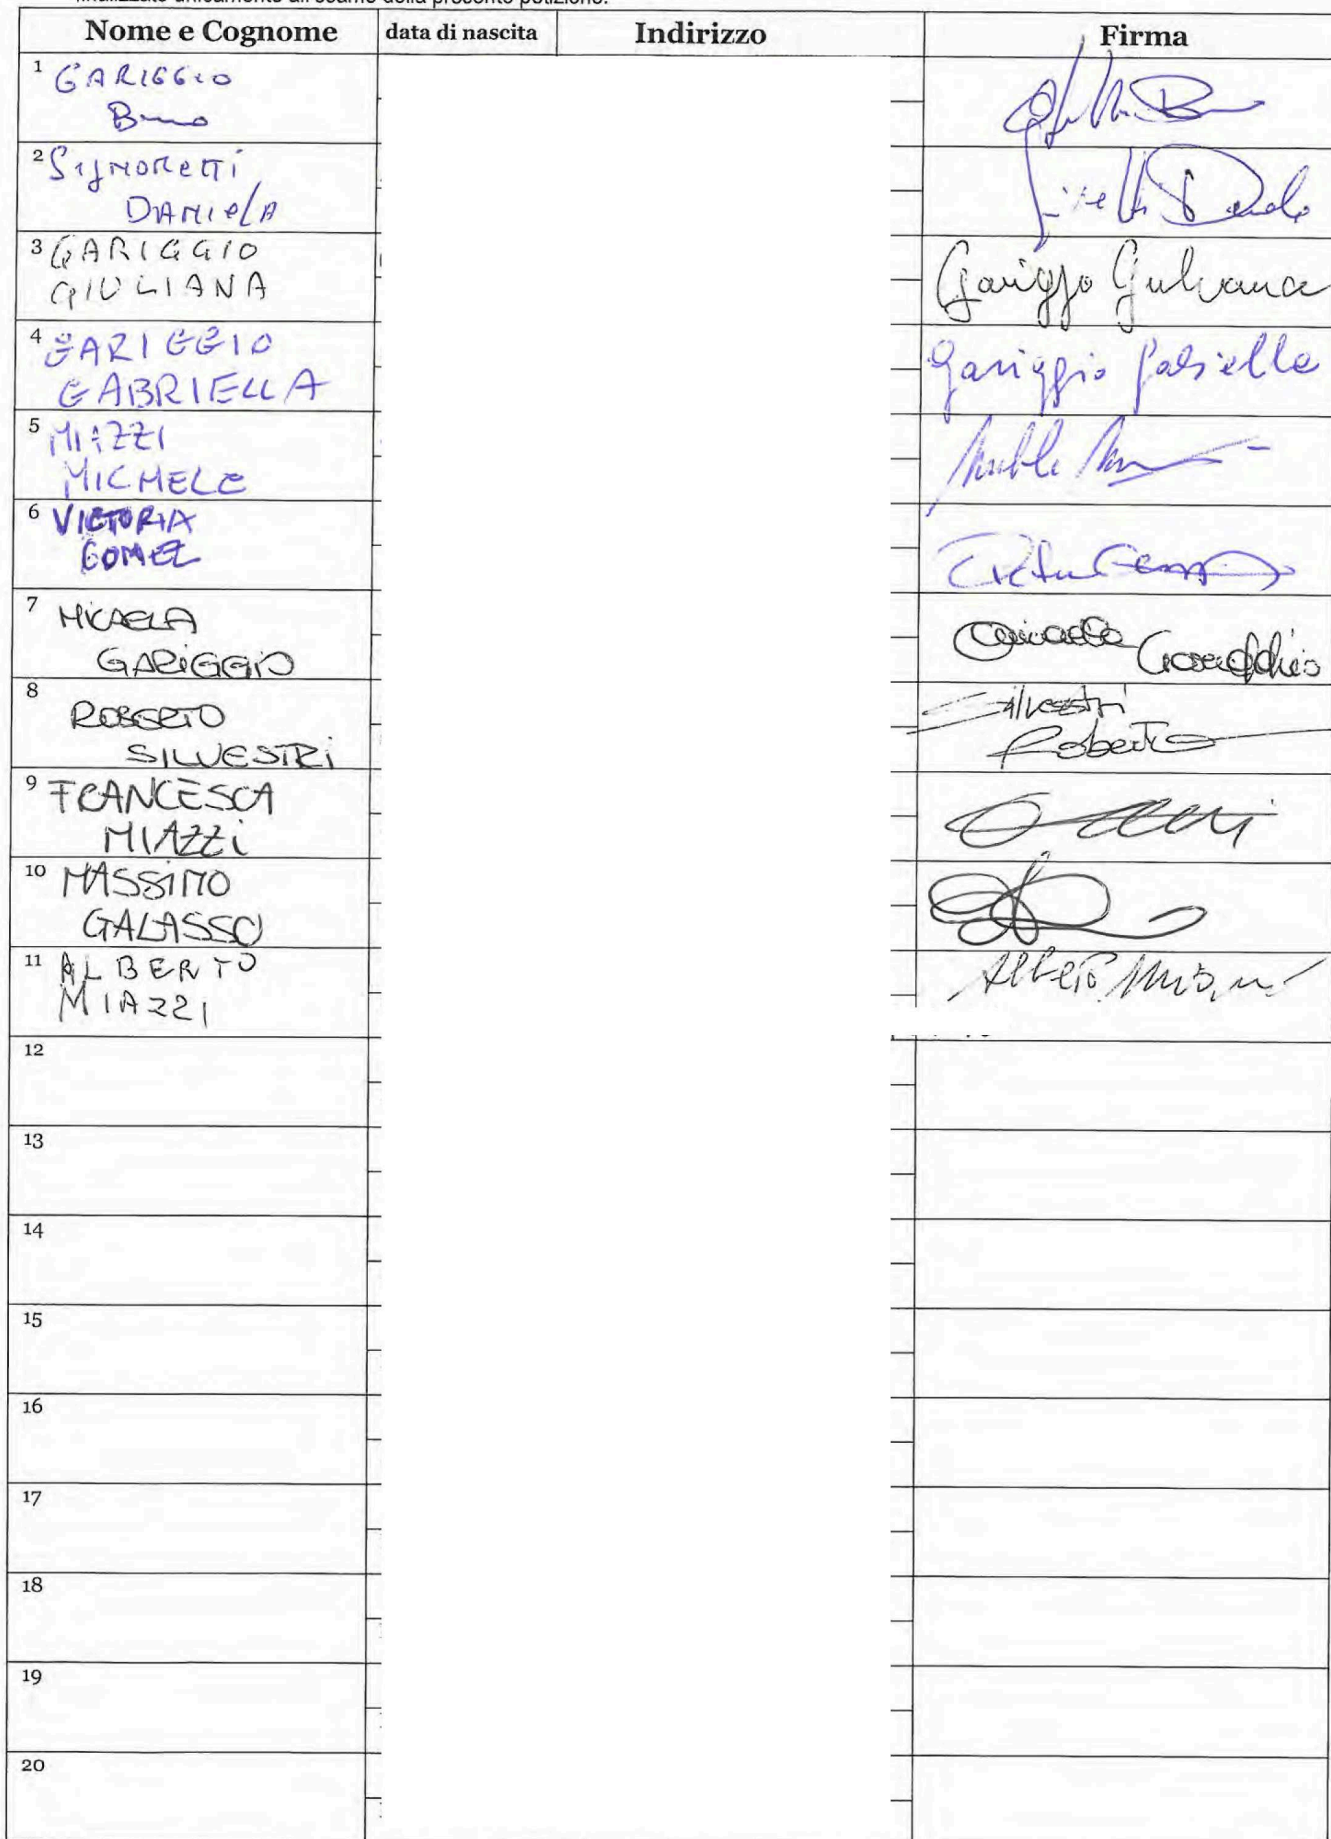 finalizzato unicamente all'esame della presente petizione.
Nome e Cognome data di nascita Indirizzo Firma
1 GARIGGIO
Bruno
2 Signoretti
DANIELA
3 GARIGGIO
GIULIANA Gariggio Giuliana
4 GARIGGIO
GABRIELLA Gariggio Gabriella
5 MIAZZI
MICHELE
6 VICTORIA
GOMEZ
7 MICAELA
GARIGGIO Micaela Gariggio
8 ROBERTO Silvestri
SILVESTRI Roberto
9 FRANCESCA
MIAZZI
10 MASSIMO
GALASSO
11 ALBERTO Alberto
MIAZZI
12
13
14
15
16
17
18
19
20